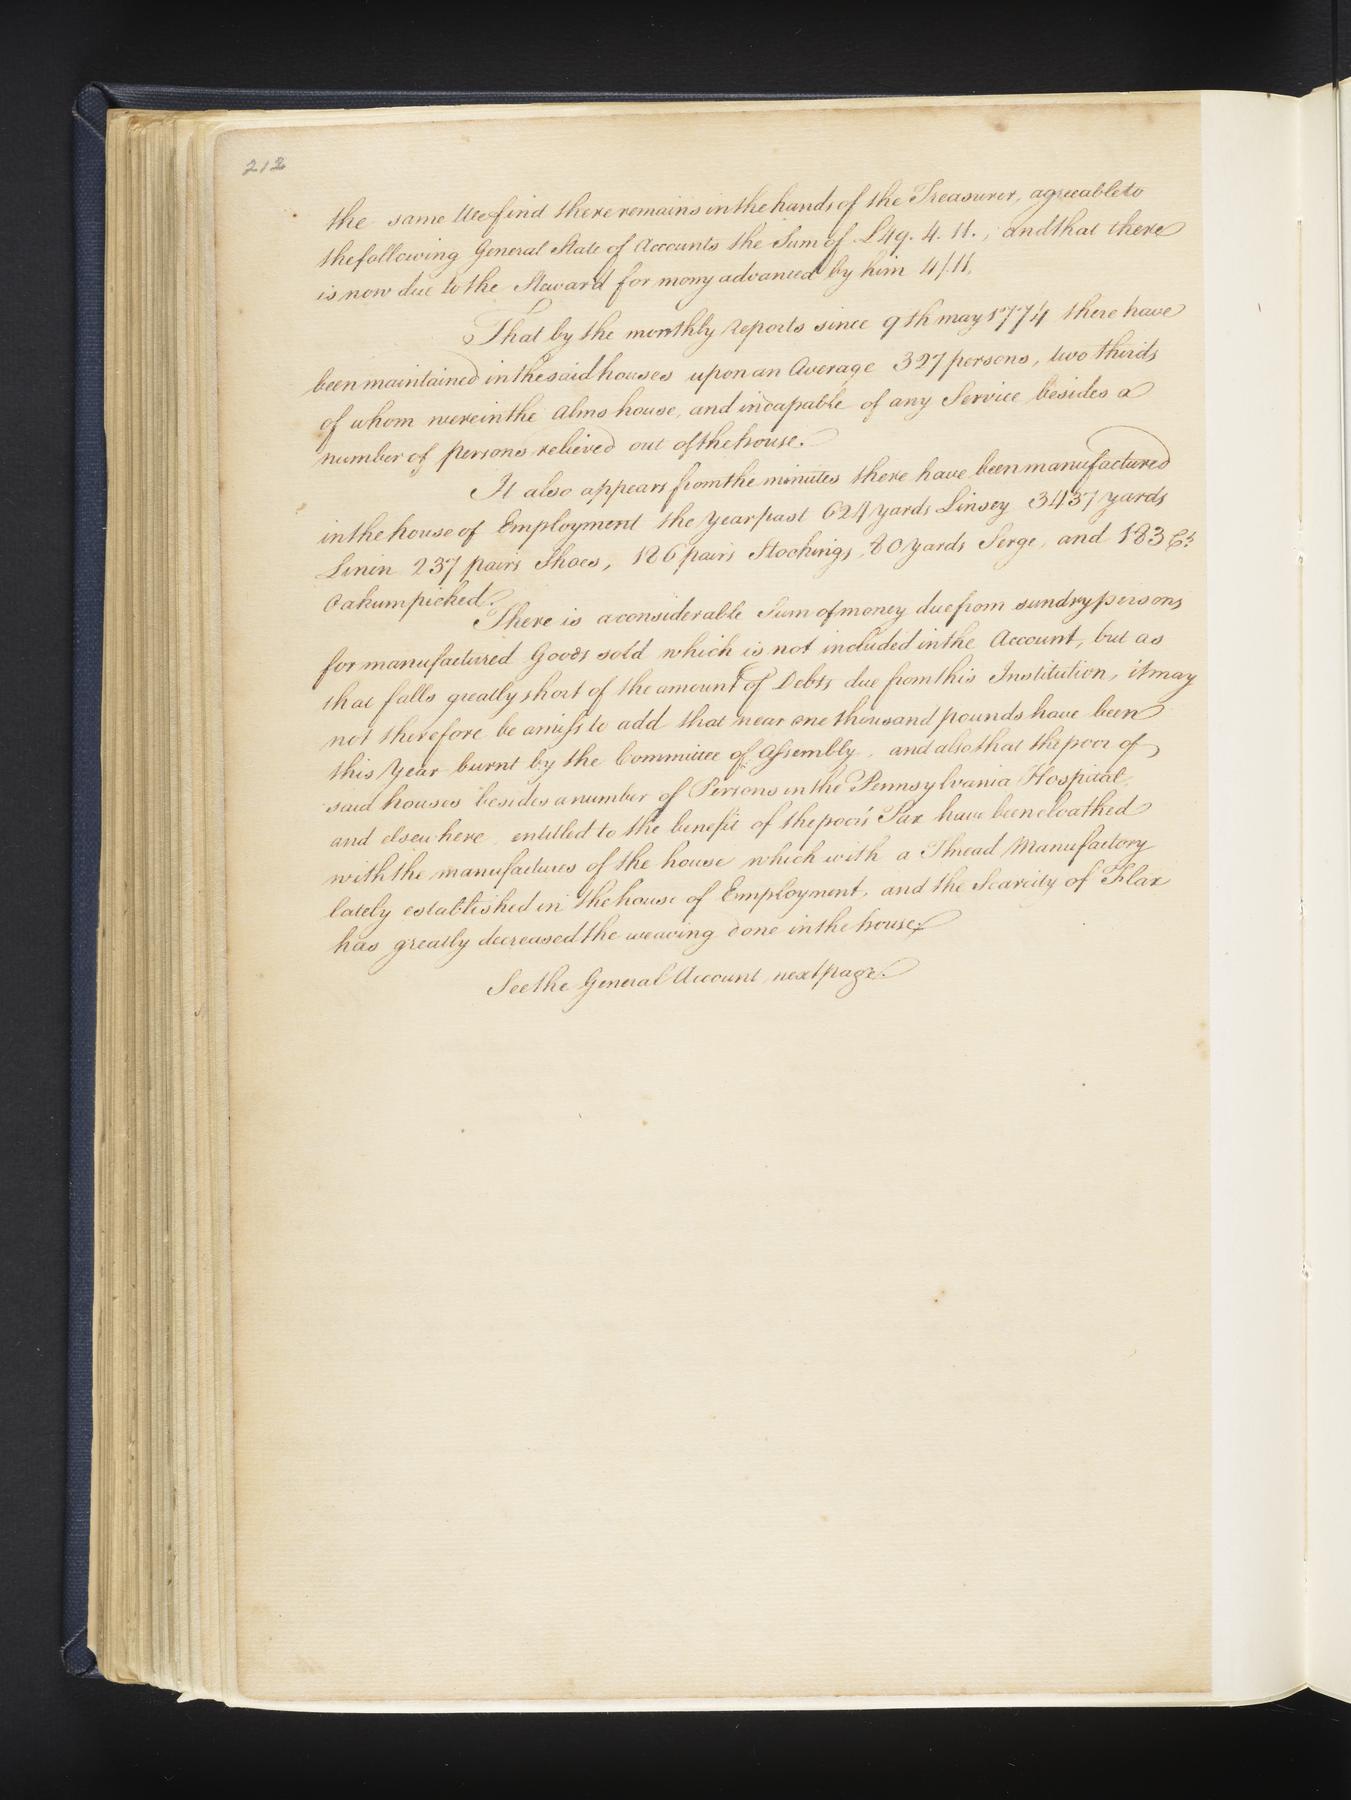 212
the same We find there remains in the hands of the Treasurer, agreeable to
the following General State of Accounts the Sum of £49. 4. 11., and that there
is now due to the Steward for mony advanced by him 4/.11.
That by the monthly reports since 9th may 1774 there have
been maintained in the said houses upon an Average 327 persons, two thirds
of whom were in the Alms house, and incapable of any Service besides a
number of persons relieved out of the house.
It also appears from the minutes there have been manufactured
in the house of Employment the year past 624 yards Linsey 3437 yards
Linin 237 pairs Shoes, 186 pairs Stockings, 80 yards Serge, and 183 Ct
Oakum picked.
There is a considerable Sum of money due from sundry persons
for manufactured Goods sold which is not included in the Account, but as
that falls greatly short of the amount of Debts due from this Institution, it may
not therefore be amiss to add that near one thousand pounds have been
this year burnt by the Committee of Assembly, and also that the poor of
said houses besides a number of Persons in the Pennsylvania Hospital,
and elsewhere entitled to the benefit of the poor's Tax have been cloathed
with the manufactures of the house which with a Thread Manufactory
lately established in the house of Employment, and the Scarcity of Flax
has greatly decreased the weaving done in the house.
See the General Account next page.